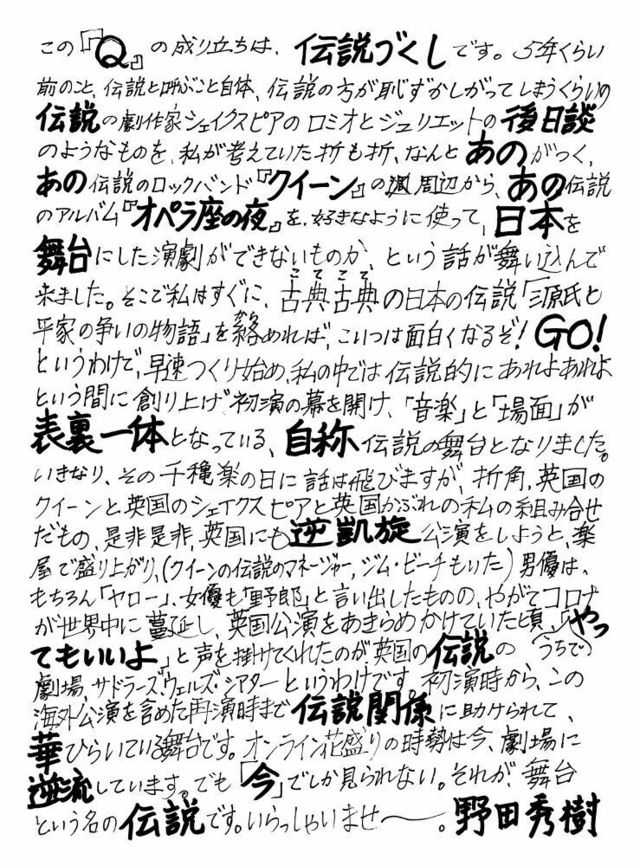 この『Q』の成り立ちは、伝説づくしです。5年くらい
前のこと、伝説と呼ぶこと自体、伝説の方が恥ずかしがってしまうくらいの
伝説の劇作家シェイクスピアのロミオとジュリエットの後日談
のようなものを、私が考えていた折も折、なんとあのがつく、
あの伝説のロックバンド『クイーン』の周辺から、あの伝説
のアルバム『オペラ座の夜』を、好きなように使って、日本を
舞台にした演劇ができないものか、という話が舞い込んで
来ました。そこで私はすぐに、古典古典の日本の伝説「源氏と
こてこて
平家の争いの物語」を絡めれば、こいつは面白くなるぞ!GO!
というわけで、早速つくり始め、私の中では伝説的にあれよあれよ
という間に創り上げ初演の幕を開け、「音楽」と「場面」が
表裏一体となっている、自称伝説の舞台となりました。
いきなり、その千穐楽の日に話は飛びますが、折角、英国の
クイーンと英国のシェイクスピアと英国かぶれの私の組み合せ
だもの、是非是非、英国にも逆凱旋公演をしようと、楽
屋で盛り上がり、(クイーンの伝説のマネージャー、ジム・ビーチもいた)男優は、
もちろん「ヤロー」、女優も「野郎」と言い出したものの、やがてコロナ
が世界中に蔓延し、英国公演をあきらめかけていた頃、「(うちで)やっ
てもいいよ」と声を掛けてくれたのが英国の伝説の
劇場、サドラーズウェルズ・シアターというわけです。初演時から、この
海外公演を含めた再演時まで伝説関係に助けられて、
華ひらいている舞台です。オンライン花盛りの時勢は今、劇場に
逆流しています。でも「今」でしか見られない。それが、舞台
という名の伝説です。いらっしゃいませ〜。野田秀樹